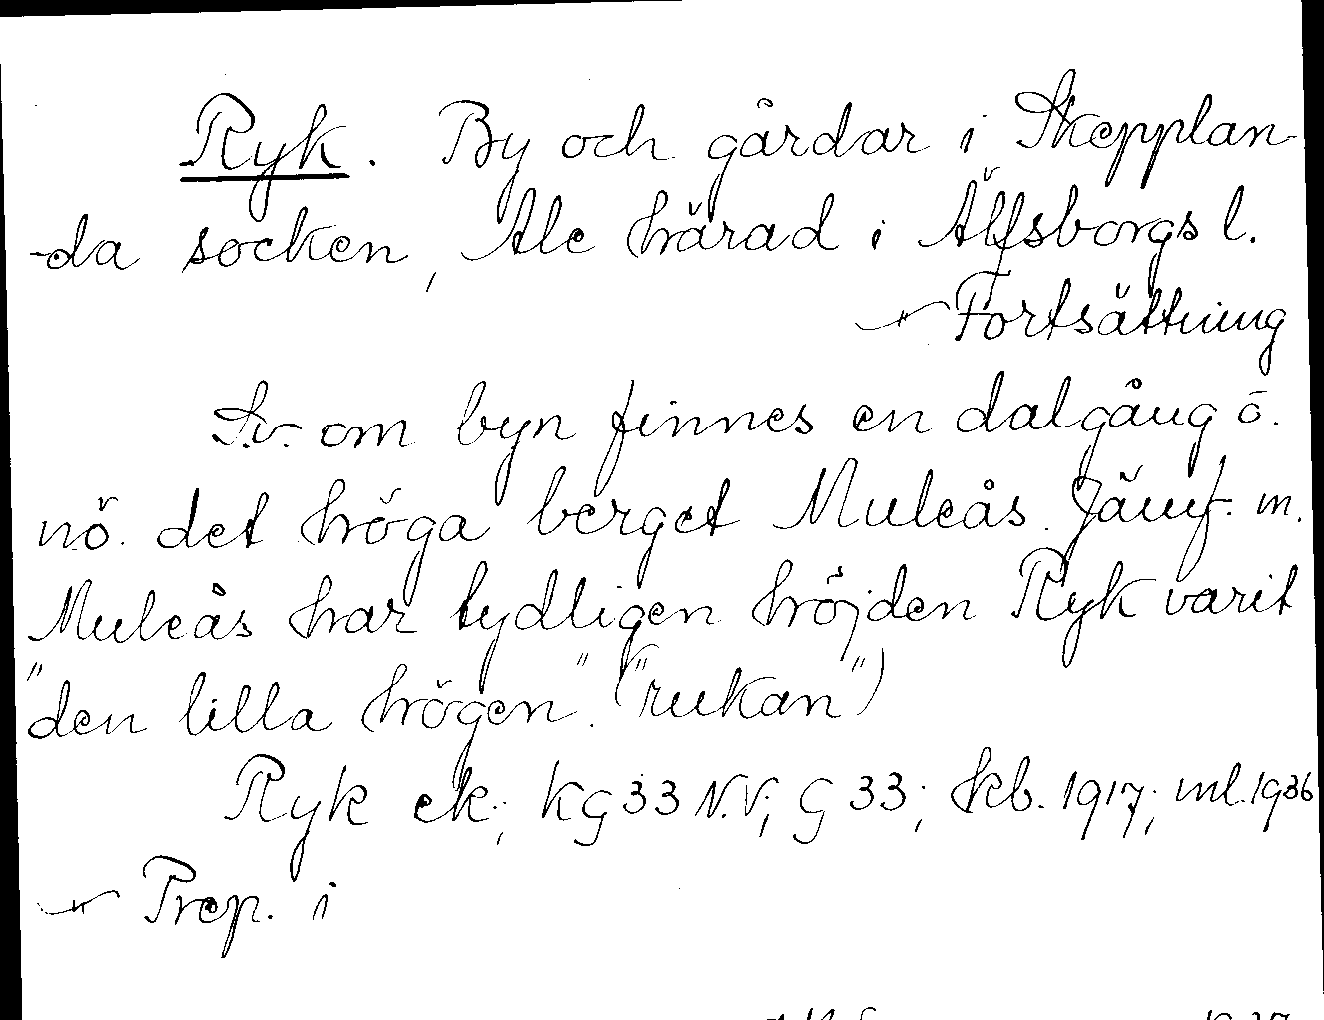 Ryk. By och gårdar i Skepplan-
-da socken, Ale härad i Älfsborgs l.
Fortsättning
S.v. om byn finnes en dalgång ö.
nö. det höga berget Muleås. Jämf. m.
Muleås har tydligen höjden Ryk varit
"den lilla högen". ("rukan")
Ryk ek.; KG33 N.V; G 33; skb. 1917; ml. 1936
Prep. i